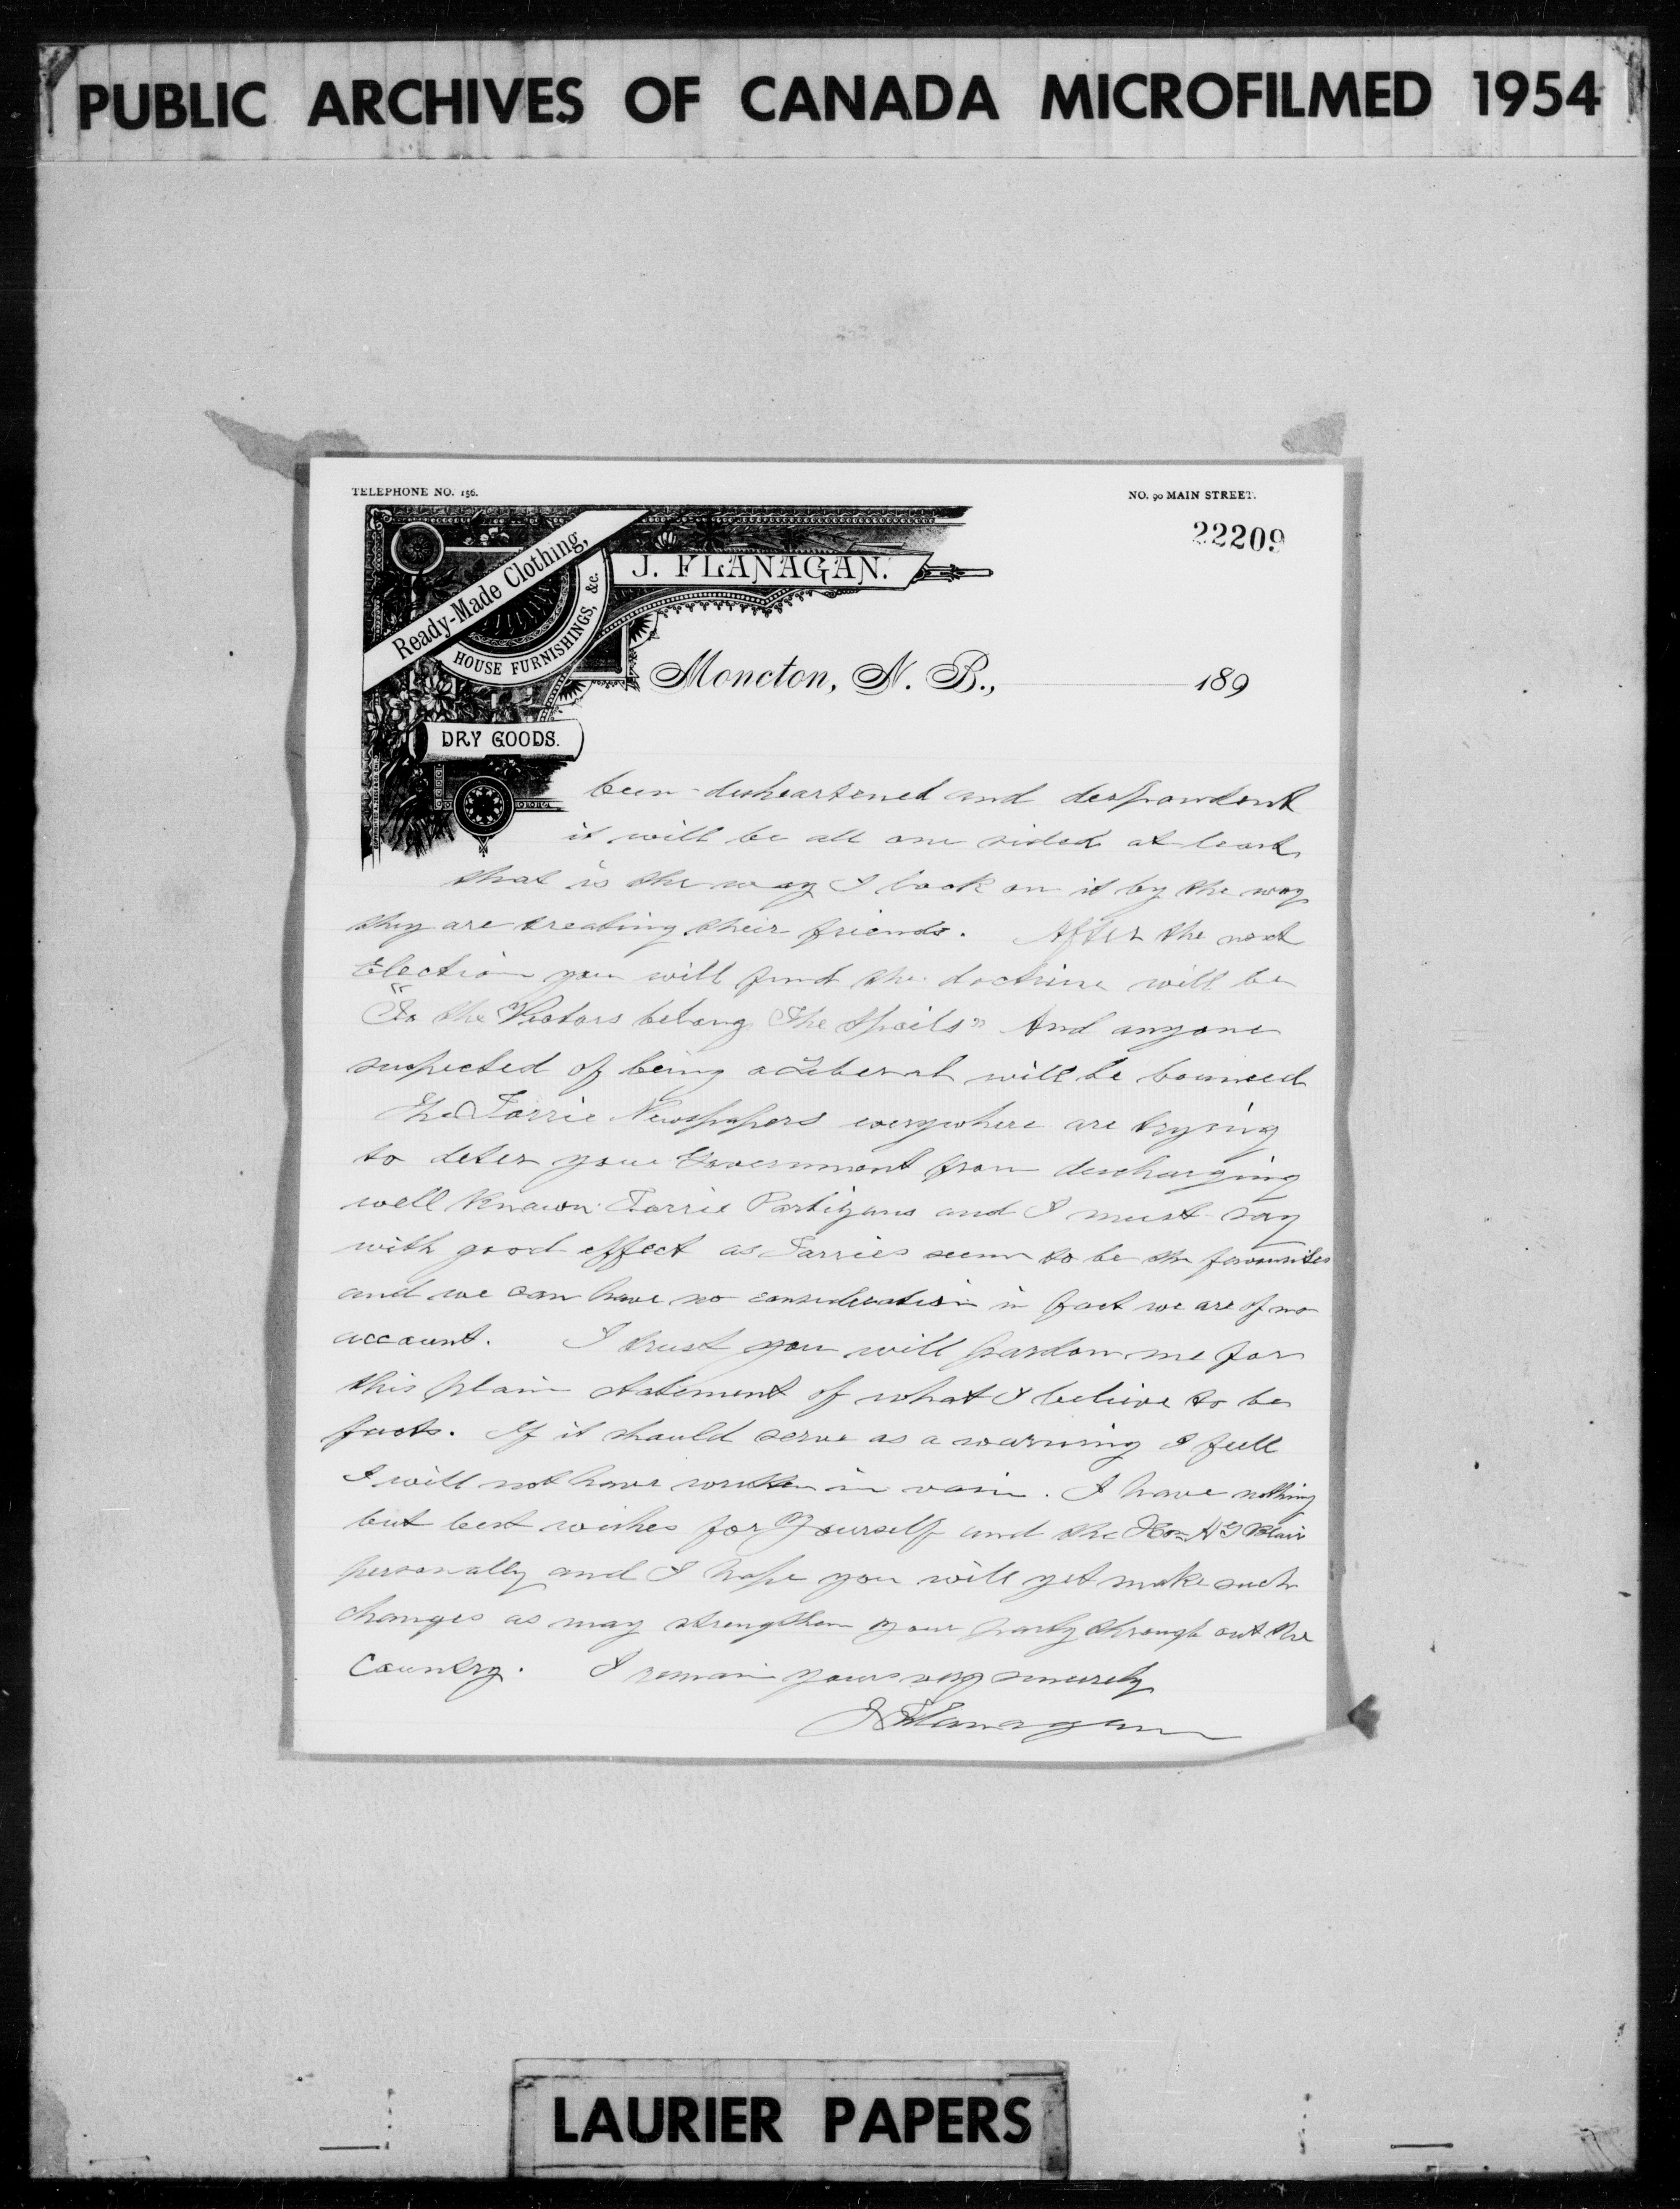 PUBLIC ARCHIVES OF CANADA MICROFILMED 1954
TELEPHONE NO. 156.
NO. 90 MAIN STREET.
22209
Ready-Made Clothing,
J. FLANAGAN.
HOUSE FURNISHINGS, &c.
Moncton, N. B., 189
DRY GOODS.
been disheartened and despondent
it will be all one sided at least
that is the way I look on it by the way
they are treating their friends. After the next
Election you will find the doctrine will be
"To the Victors belong The Spoils" And anyone
suspected of being a Liberal will be bounced
The Torrie Newspapers everywhere are trying
to deter your Government from discharging
well known Torrie Partizans and I must say
with good effect as Torries seem to be the favourites
and we can have no consideration in fact we are of no
account. I trust you will pardon me for
this plain statement of what I believe to be
facts. If it should serve as a warning I feel
I will not have written in vain. I have nothing
but best wishes for Yourself and the Hon A G Blair
personally and I hope you will yet make such
changes as may strengthen your party through out the
Country. I remain yours very sincerely
J Flanagan
LAURIER PAPERS